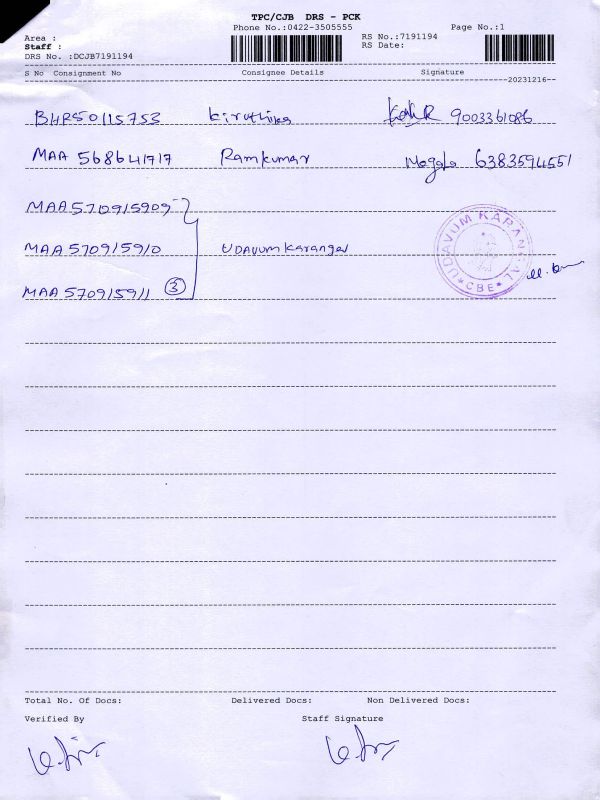 TPC/CJB DRS - PCK
Phone No.:0422-3505555
Page No.:1
Area :
Staff :
DRS No. :DCJB7191194
RS No.:7191194
RS Date:
S No Consignment No Consignee Details Signature
20231216
BHR50115753 Kiruthika 9003361086
MAA 568641717 Ramkumar Magala 6383594551
MAA570915909
MAA570915910 UDavum Karangal
MAA570915911 3
UDAVUM KARANGAL
CBE
Total No. Of Docs: Delivered Docs: Non Delivered Docs:
Verified By Staff Signature